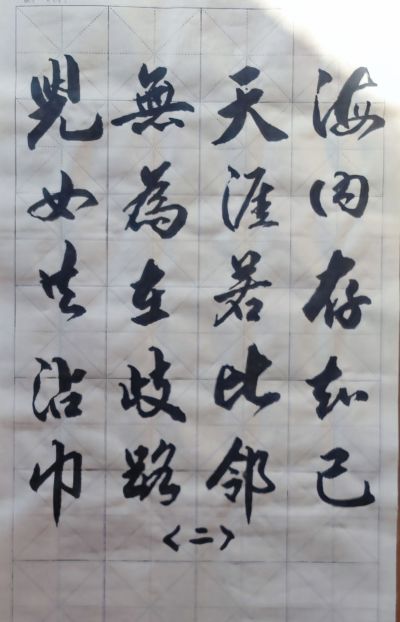 海内存知己
天涯若比邻
無為在歧路
兒女共沾巾
<二>